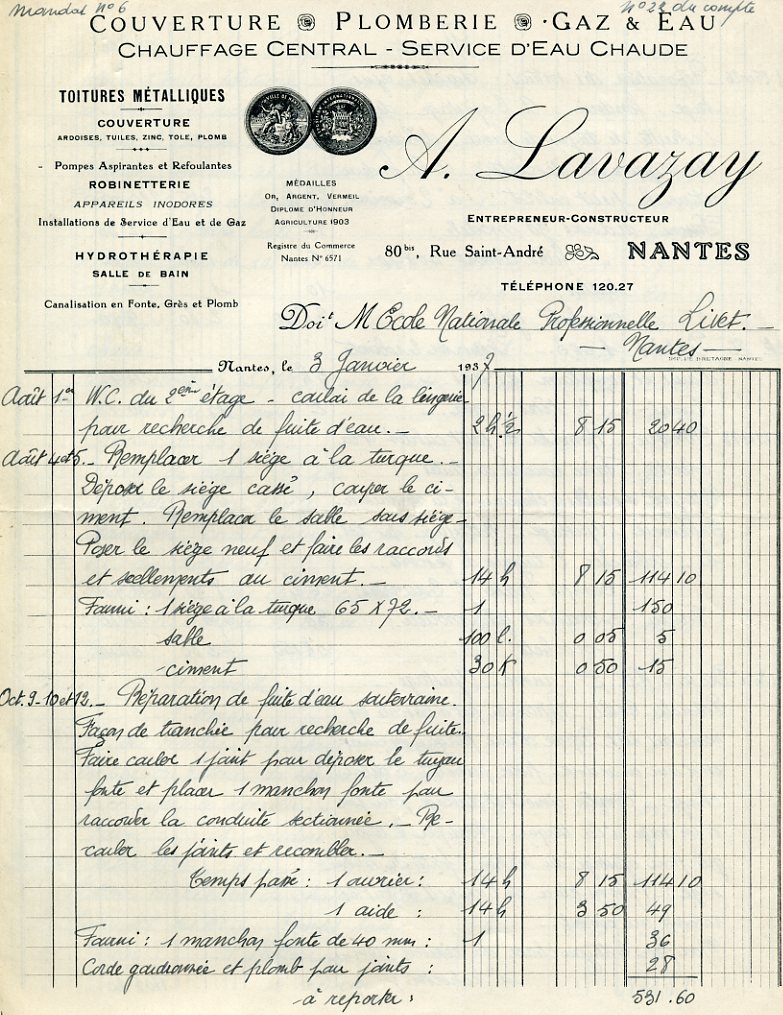 mandat n° 6
n° 22 du compte
COUVERTURE PLOMBERIE GAZ & EAU
CHAUFFAGE CENTRAL - SERVICE D'EAU CHAUDE
TOITURES MÉTALLIQUES
COUVERTURE
ARDOISES, TUILES, ZINC, TOLE, PLOMB
Pompes Aspirantes et Refoulantes
ROBINETTERIE
APPAREILS INODORES
Installations de Service d'Eau et de Gaz
HYDROTHÉRAPIE
SALLE DE BAIN
Canalisation en Fonte, Grès et Plomb
MÉDAILLES
OR, ARGENT, VERMEIL
DIPLOME D'HONNEUR
AGRICULTURE 1903
Registre du Commerce
Nantes N° 6571
A. Lavazay
ENTREPRENEUR-CONSTRUCTEUR
80bis, Rue Saint-André NANTES
TÉLÉPHONE 120.27
Doit M Ecole Nationale Professionnelle Livet.
Nantes
IMP. DE BRETAGNE NANTES
Nantes, le 3 Janvier 1937
Août 1er W.C. du 2ème étage - couloi de la lingerie
pour recherche de fuite d'eau. 2h 1/2 8 15 20 40
Août 4 et 5. Remplacer 1 siège à la turque.
Déposer le siège cassé, couper le ci-
ment. Remplacer le sable sous siège
Poser le siège neuf et faire les raccords
et scellements au ciment. 14 h 8 15 114 10
Fourni : 1 siège à la turque 65 x 72. 1 150
sable 100 l. 0 05 5
ciment 30 K 0 50 15
Oct. 9-10 et 12. Réparation de fuite d'eau souterraine.
Façon de tranchée pour recherche de fuite.
Faire couler 1 joint pour déposer le tuyau
fonte et placer 1 manchon fonte pour
raccorder la conduite sectionnée. Re-
couler les joints et recombler.
Temps passé : 1 ouvrier : 14 h 8 15 114 10
1 aide : 14 h 3 50 49
Fourni : 1 manchon fonte de 40 mm : 1 36
Corde goudronnée et plomb pour joints : 28
à reporter : 531.60